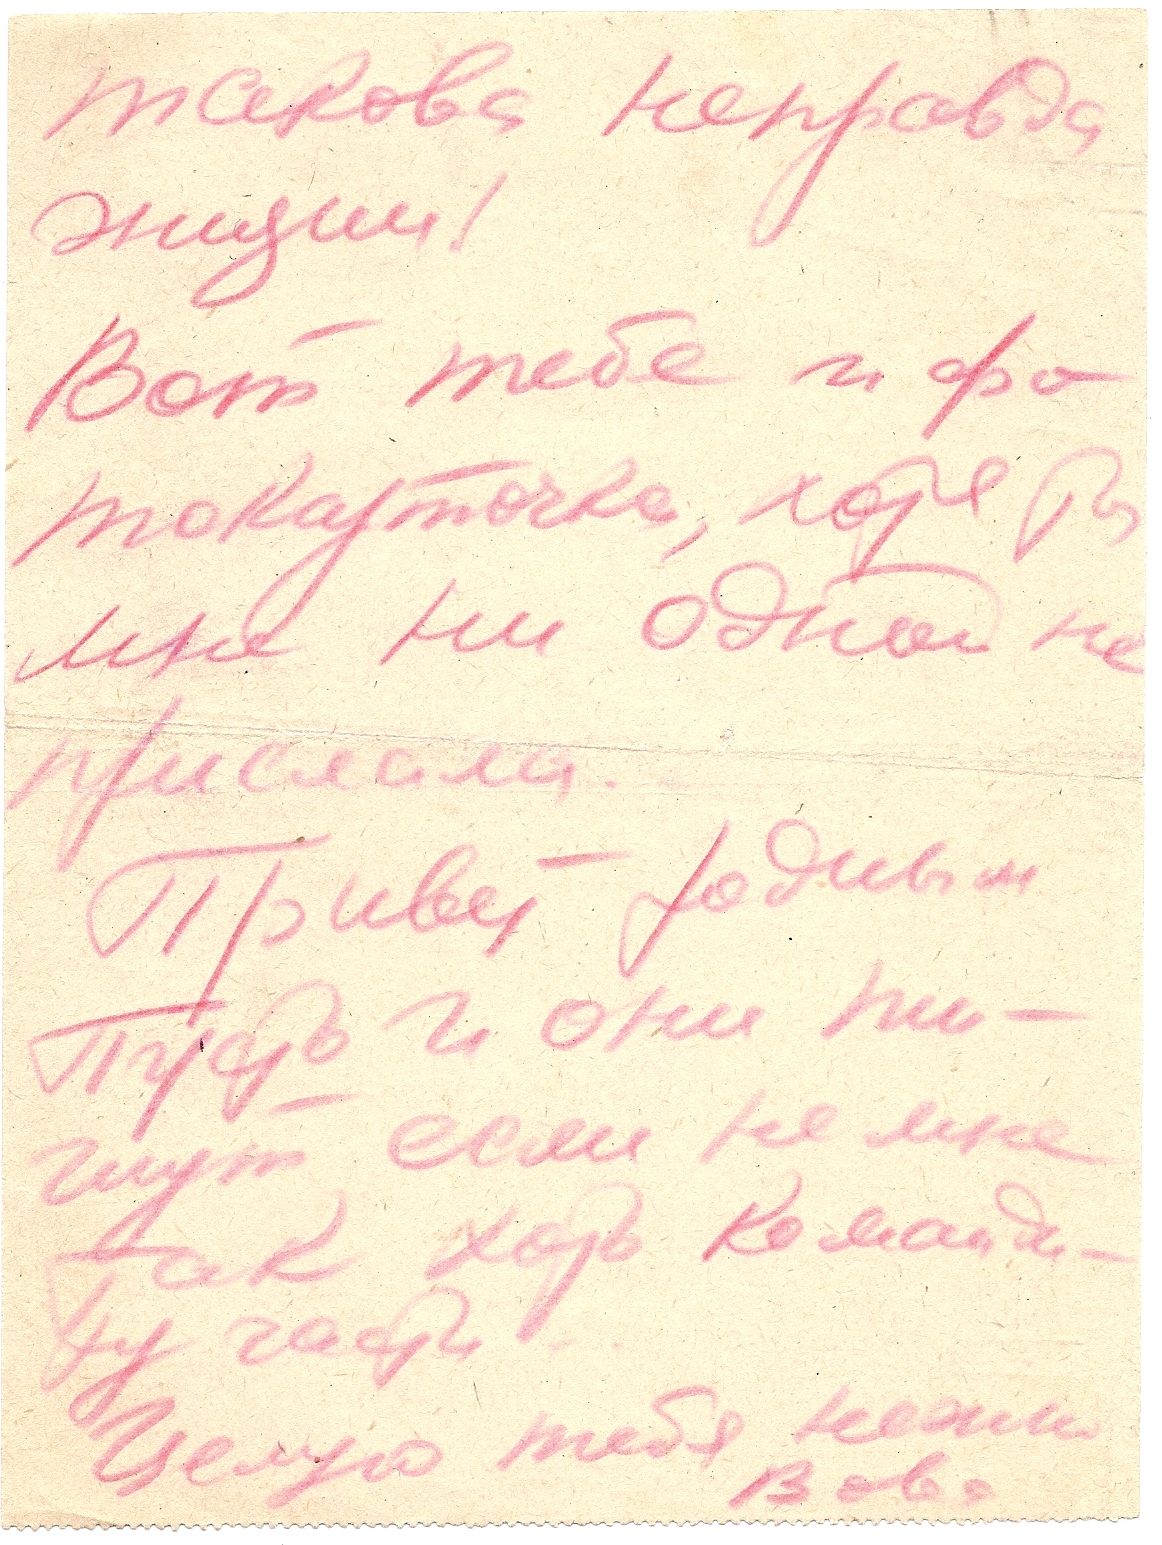 такова неправда
жизни!
Вот тебе и фо-
токарточка, хотя ты
мне ни одной не
прислала.
Привет родным
Пусть и они пи-
шут если не мне
так хоть команди-
ру части...
Целую тебя нежно
Вова